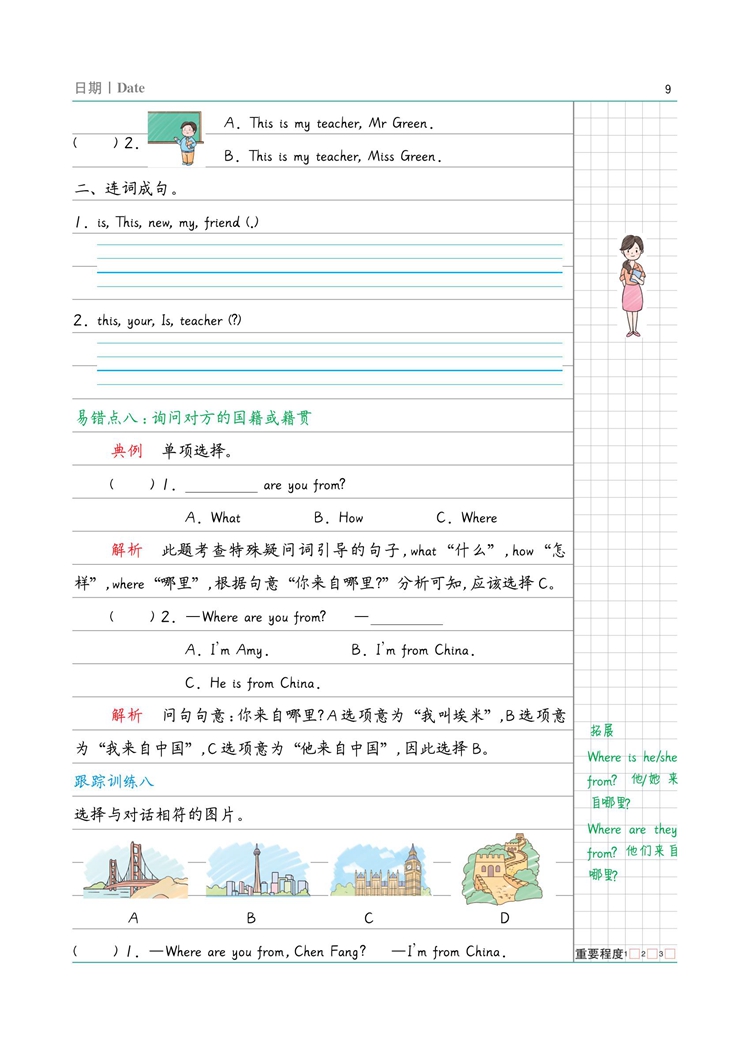 日期 | Date
9
(  ) 2.
A. This is my teacher, Mr Green.
B. This is my teacher, Miss Green.
二、连词成句。
1. is, This, new, my, friend (.)
2. this, your, Is, teacher (?)
易错点八:询问对方的国籍或籍贯
典例 单项选择。
(  ) 1. ________ are you from?
A. What B. How C. Where
解析 此题考查特殊疑问词引导的句子,what“什么”,how“怎
样”,where“哪里”,根据句意“你来自哪里?”分析可知,应该选择C。
(  ) 2. —Where are you from? —________
A. I'm Amy. B. I'm from China.
C. He is from China.
解析 问句句意:你来自哪里?A选项意为“我叫埃米”,B选项意
为“我来自中国”,C选项意为“他来自中国”,因此选择B。
跟踪训练八
选择与对话相符的图片。
A B C D
(  ) 1. —Where are you from, Chen Fang? —I'm from China.
拓展
Where is he/she
from? 他/她来
自哪里?
Where are they
from? 他们来自
哪里?
重要程度 1 2 3